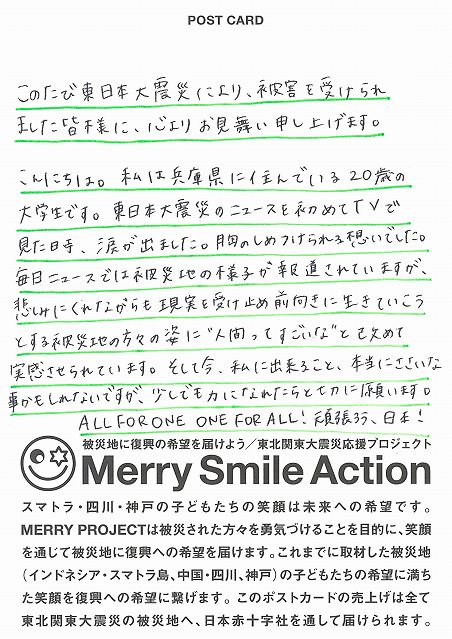 POST CARD
このたび東日本大震災により、被害を受けられ
ました皆様に、心よりお見舞い申し上げます。
こんにちは。私は兵庫県に住んでいる20歳の
大学生です。東日本大震災のニュースを初めてTVで
見た日寺、涙が出ました。胸のしめつけられる想いでした。
毎日ニュースでは被災地の様子が報道されていますが、
悲しみにくれながらも現実を受け止め前向きに生きていこう
とする被災地の方々の姿に"人間ってすごいな"と改めて
実感させられています。そして今、私に出来ること、本当にささいな
事かもしれないですが、少しでも力になれたらと切に願います。
ALL FOR ONE ONE FOR ALL! 頑張ろう、日本!
被災地に復興の希望を届けよう/東北関東大震災応援プロジェクト
Merry Smile Action
スマトラ・四川・神戸の子どもたちの笑顔は未来への希望です。
MERRY PROJECTは被災された方々を勇気づけることを目的に、笑顔
を通じて被災地に復興への希望を届けます。これまでに取材した被災地
(インドネシア・スマトラ島、中国・四川、神戸)の子どもたちの希望に満ち
た笑顔を復興への希望に繋げます。このポストカードの売上げは全て
東北関東大震災の被災地へ、日本赤十字社を通して届けられます。